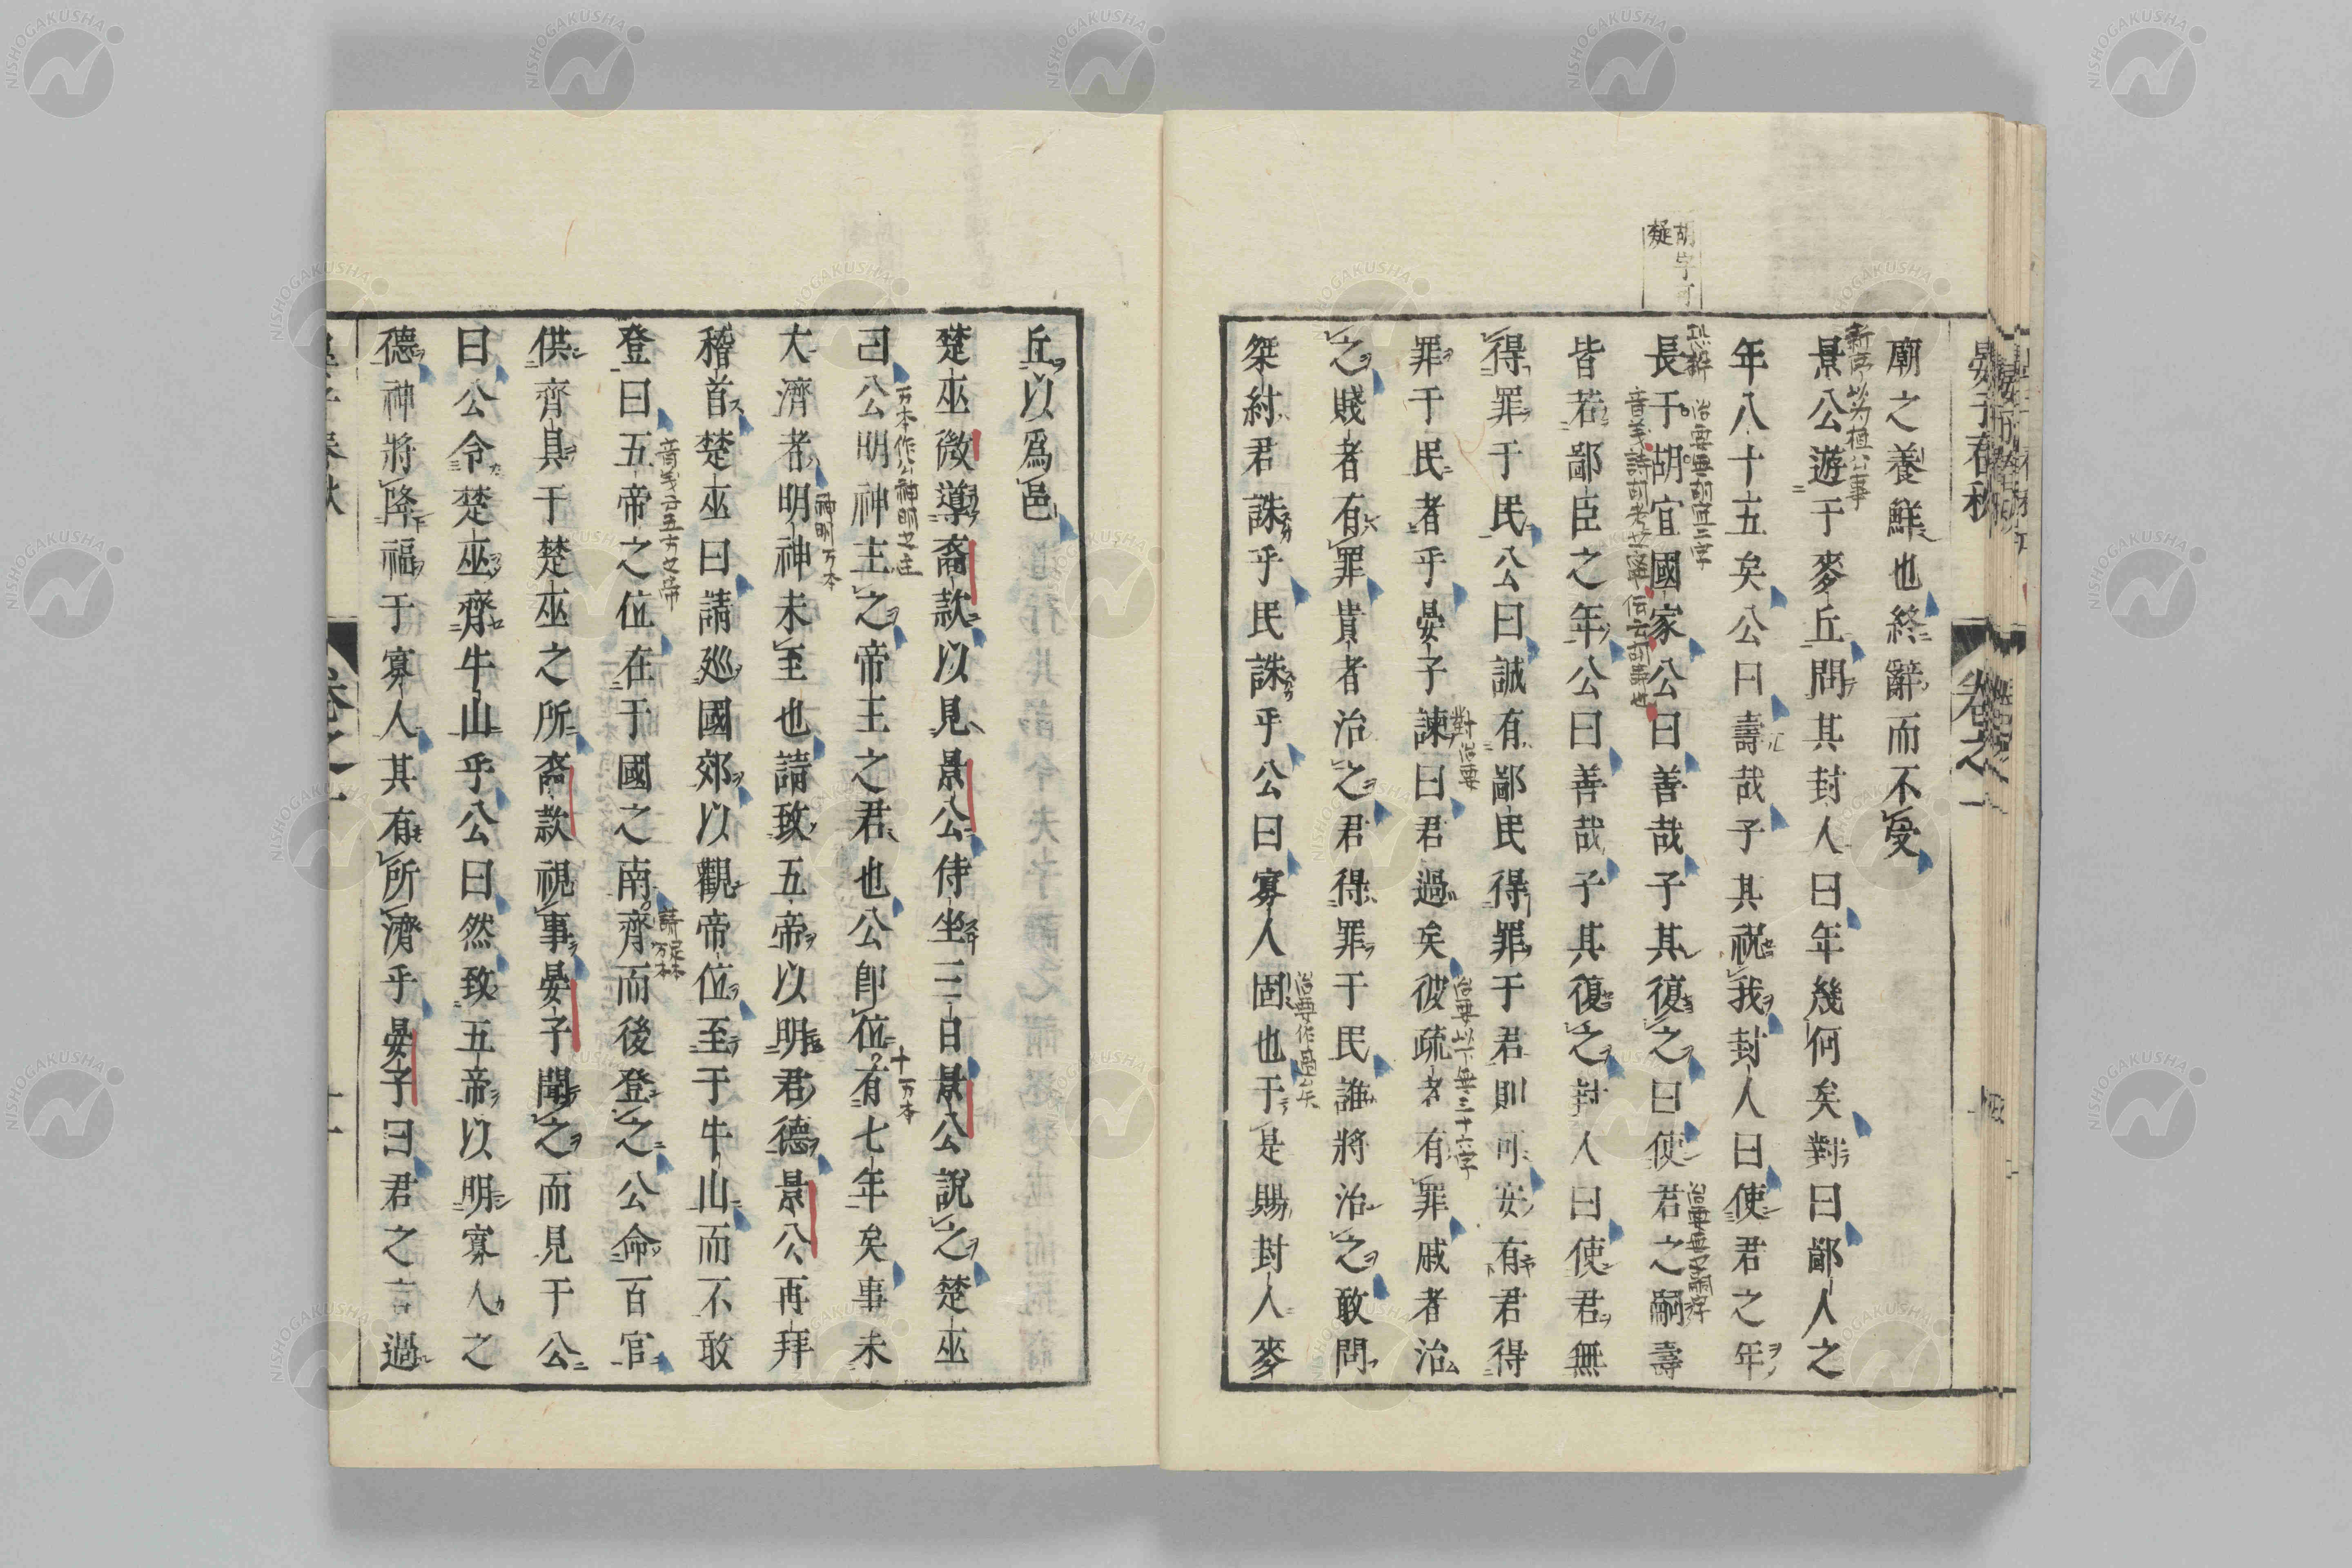 晏子春秋
卷之一
廟之養鮮也終辭而不受
景公遊于麥丘問其封人曰年幾何矣對曰鄙人之
年八十五矣公曰壽哉子其祝我封人曰使君之年
長于胡宜國家公曰善哉子其復之曰使君之嗣壽
皆若鄙臣之年公曰善哉子其復之封人曰使君無
得罪于民公曰誠有鄙民得罪于君則可安有君得
罪于民者乎晏子諫曰君過矣彼疏者有罪戚者治
之賤者有罪貴者治之君得罪于民誰將治之敢問
桀紂君誅乎民誅乎公曰寡人固也于是賜封人麥
胡字可
疑
新序以為桓公事
治要無胡宜三字
音義詩胡考之寧伝云胡壽也
治要無之嗣字
對治要
治要以下無三十六字
治要作過矣
丘以爲邑
楚巫微導裔款以見景公侍坐三日景公說之楚巫
曰公明神主之帝王之君也公卽位有七年矣事未
大濟者明神未至也請致五帝以明君德景公再拜
稽首楚巫曰請巡國郊以觀帝位至于牛山而不敢
登曰五帝之位在于國之南齊而後登之公命百官
供齊具于楚巫之所裔款視事晏子聞之而見于公
曰公令楚巫齊牛山乎公曰然致五帝以明寡人之
德神將降福于寡人其有所濟乎晏子曰君之言過
万本作公神明之主
十万本
神明万本
音義云五方之帝
晏子春秋
卷之一
十一
NISHOGAKUSHA